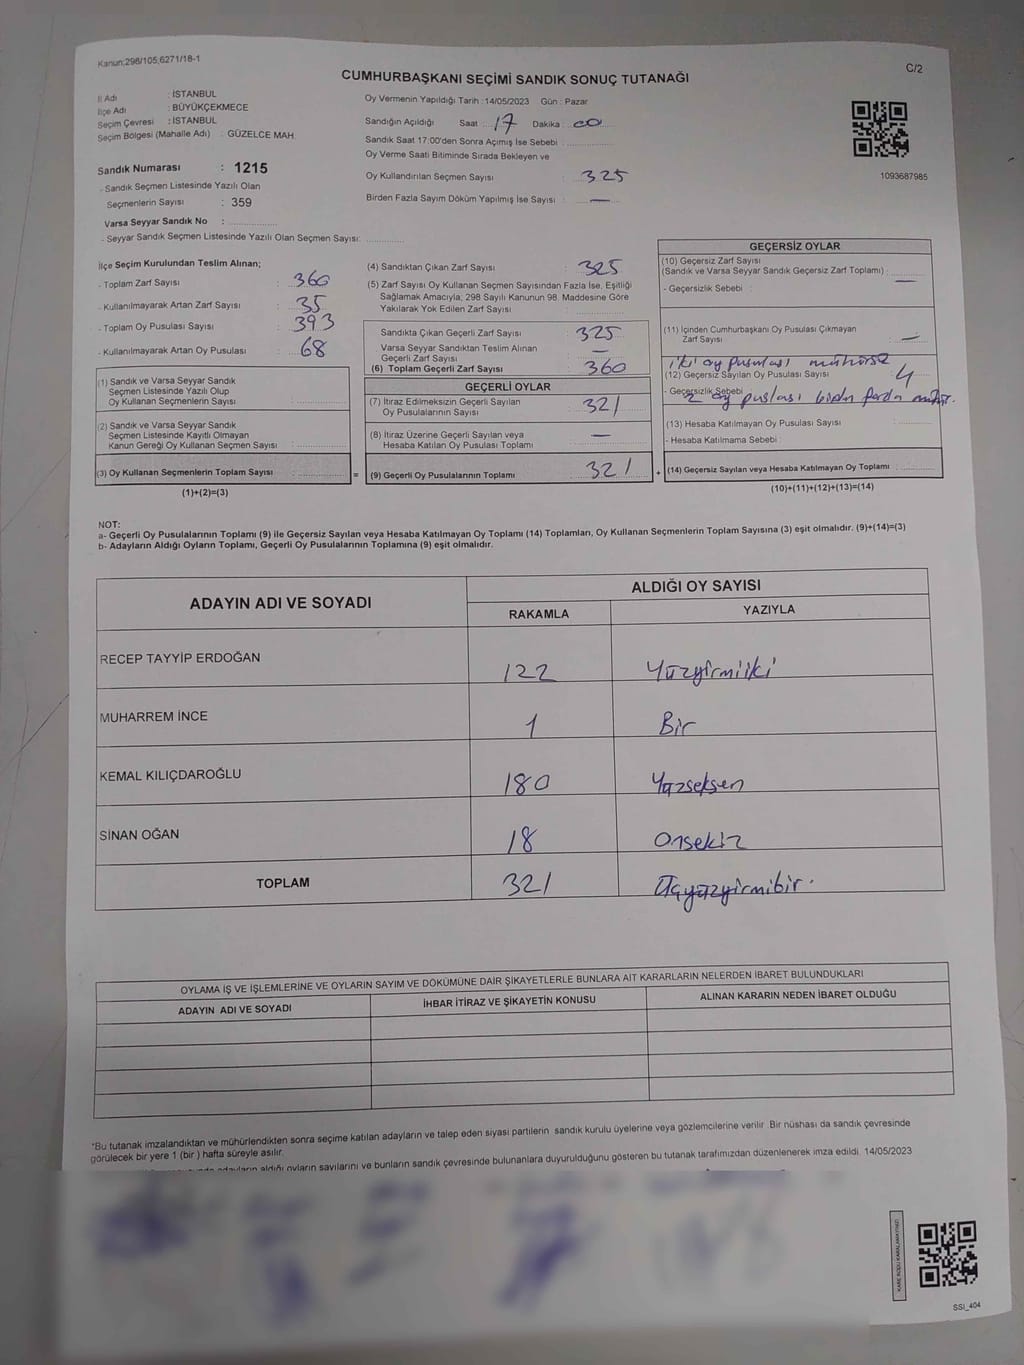 Kanun;298/105,6271/18-1
C/2
CUMHURBAŞKANI SEÇİMİ SANDIK SONUÇ TUTANAĞI
İl Adı : İSTANBUL
İlçe Adı : BÜYÜKÇEKMECE
Seçim Çevresi : İSTANBUL
Seçim Bölgesi (Mahalle Adı) : GÜZELCE MAH.
Sandık Numarası : 1215
- Sandık Seçmen Listesinde Yazılı Olan
Seçmenlerin Sayısı : 359
Varsa Seyyar Sandık No :
- Seyyar Sandık Seçmen Listesinde Yazılı Olan Seçmen Sayısı:
Oy Vermenin Yapıldığı Tarih :14/05/2023 Gün : Pazar
Sandığın Açıldığı Saat : 17 Dakika : 00
Sandık Saat 17:00'den Sonra Açımış İse Sebebi :
Oy Verme Saati Bitiminde Sırada Bekleyen ve
Oy Kullandırılan Seçmen Sayısı : 325
Birden Fazla Sayım Döküm Yapılmış İse Sayısı : —
1093687985
İlçe Seçim Kurulundan Teslim Alınan;
- Toplam Zarf Sayısı : 360
- Kullanılmayarak Artan Zarf Sayısı : 35
- Toplam Oy Pusulası Sayısı : 393
- Kullanılmayarak Artan Oy Pusulası : 68
(1) Sandık ve Varsa Seyyar Sandık
Seçmen Listesinde Yazılı Olup
Oy Kullanan Seçmenlerin Sayısı :
(2) Sandık ve Varsa Seyyar Sandık
Seçmen Listesinde Kayıtlı Olmayan
Kanun Gereği Oy Kullanan Seçmen Sayısı :
(3) Oy Kullanan Seçmenlerin Toplam Sayısı :
(1)+(2)=(3)
(4) Sandıktan Çıkan Zarf Sayısı : 325
(5) Zarf Sayısı Oy Kullanan Seçmen Sayısından Fazla İse, Eşitliği
Sağlamak Amacıyla; 298 Sayılı Kanunun 98. Maddesine Göre
Yakılarak Yok Edilen Zarf Sayısı :
Sandıkta Çıkan Geçerli Zarf Sayısı : 325
Varsa Seyyar Sandıktan Teslim Alınan
Geçerli Zarf Sayısı : —
(6) Toplam Geçerli Zarf Sayısı : 360
GEÇERLİ OYLAR
(7) İtiraz Edilmeksizin Geçerli Sayılan
Oy Pusulalarının Sayısı : 321
(8) İtiraz Üzerine Geçerli Sayılan veya
Hesaba Katılan Oy Pusulası Toplamı : —
= (9) Geçerli Oy Pusulalarının Toplamı : 321
GEÇERSİZ OYLAR
(10) Geçersiz Zarf Sayısı
(Sandık ve Varsa Seyyar Sandık Geçersiz Zarf Toplamı) : —
- Geçersizlik Sebebi :
(11) İçinden Cumhurbaşkanı Oy Pusulası Çıkmayan
Zarf Sayısı : —
iki oy pusulası mühürsz
(12) Geçersiz Sayılan Oy Pusulası Sayısı : 4
- Geçersizlik Sebebi
2 oy puslası birden fazla mühür.
(13) Hesaba Katılmayan Oy Pusulası Sayısı :
- Hesaba Katılmama Sebebi :
+ (14) Geçersiz Sayılan veya Hesaba Katılmayan Oy Toplamı :
(10)+(11)+(12)+(13)=(14)
NOT:
a- Geçerli Oy Pusulalarının Toplamı (9) ile Geçersiz Sayılan veya Hesaba Katılmayan Oy Toplamı (14) Toplamları, Oy Kullanan Seçmenlerin Toplam Sayısına (3) eşit olmalıdır. (9)+(14)=(3)
b- Adayların Aldığı Oyların Toplamı, Geçerli Oy Pusulalarının Toplamına (9) eşit olmalıdır.
ADAYIN ADI VE SOYADI
ALDIĞI OY SAYISI
RAKAMLA YAZIYLA
RECEP TAYYİP ERDOĞAN 122 Yüzyirmiiki
MUHARREM İNCE 1 Bir
KEMAL KILIÇDAROĞLU 180 Yüzseksen
SİNAN OĞAN 18 Onsekiz
TOPLAM 321 Üçyüzyirmibir.
OYLAMA İŞ VE İŞLEMLERİNE VE OYLARIN SAYIM VE DÖKÜMÜNE DAİR ŞİKAYETLERLE BUNLARA AİT KARARLARIN NELERDEN İBARET BULUNDUKLARI
ADAYIN ADI VE SOYADI İHBAR İTİRAZ VE ŞİKAYETİN KONUSU ALINAN KARARIN NEDEN İBARET OLDUĞU
*Bu tutanak imzalandıktan ve mühürlendikten sonra seçime katılan adayların ve talep eden siyasi partilerin sandık kurulu üyelerine veya gözlemcilerine verilir. Bir nüshası da sandık çevresinde
görülecek bir yere 1 (bir ) hafta süreyle asılır.
adayların aldığı oyların sayılarını ve bunların sandık çevresinde bulunanlara duyurulduğunu gösteren bu tutanak tarafımızdan düzenlenerek imza edildi. 14/05/2023
SSİ_404